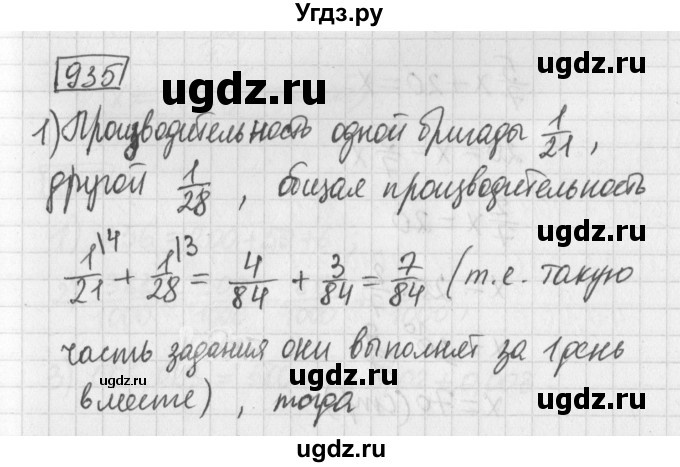 Угдз.ру
935
ugdz.ru ugdz.ru
1) Производительность одной бригады 1/21,
другой 1/28, общая производительность
1/21 \4 + 1/28 \3 = 4/84 + 3/84 = 7/84 (т.е. такую
ugdz.ru ugdz.ru
часть задания они выполнят за 1 день
вместе), тогда
ugdz.ru ugdz.ru